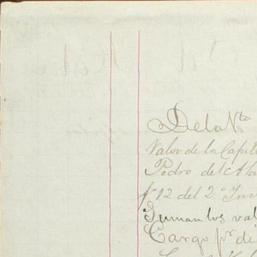 De la Vta
Valor de la Capill
Pedro del Ma
fs 12 del 2º Inv
Suman los val
Cargo pr de